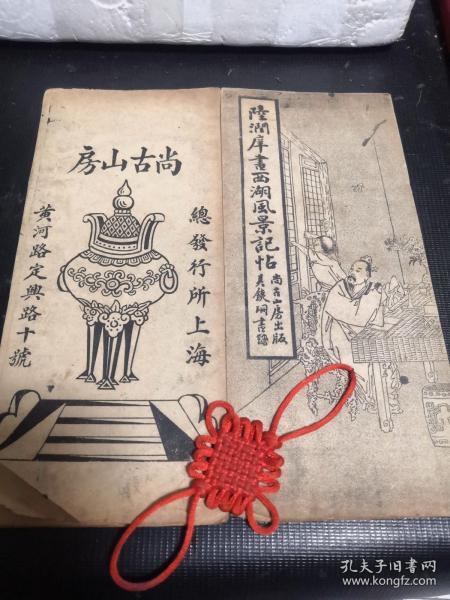 陸潤庠書西湖風景記帖
尚古山房出版
尚古山房
總發行所上海
黃河路定興路十號
孔夫子旧书网
www.kongfz.com